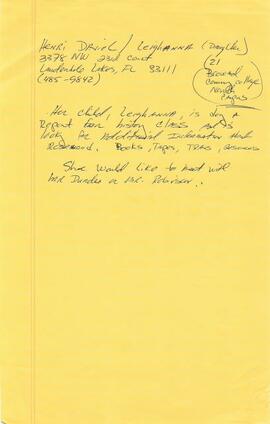 Henri David / Leighanna (Daughter)
3378 NW 23rd Court
21
Lauderdale Lakes, FL 33111
Broward
Community College
(485-9842)
North
Campus
Her child, Leighanna, is doing a
Report for history class and is
look for Additional Information
Rosewood. Books, Tapes,
She would like to meet with
Mr Dundee or Mr. Robinson.